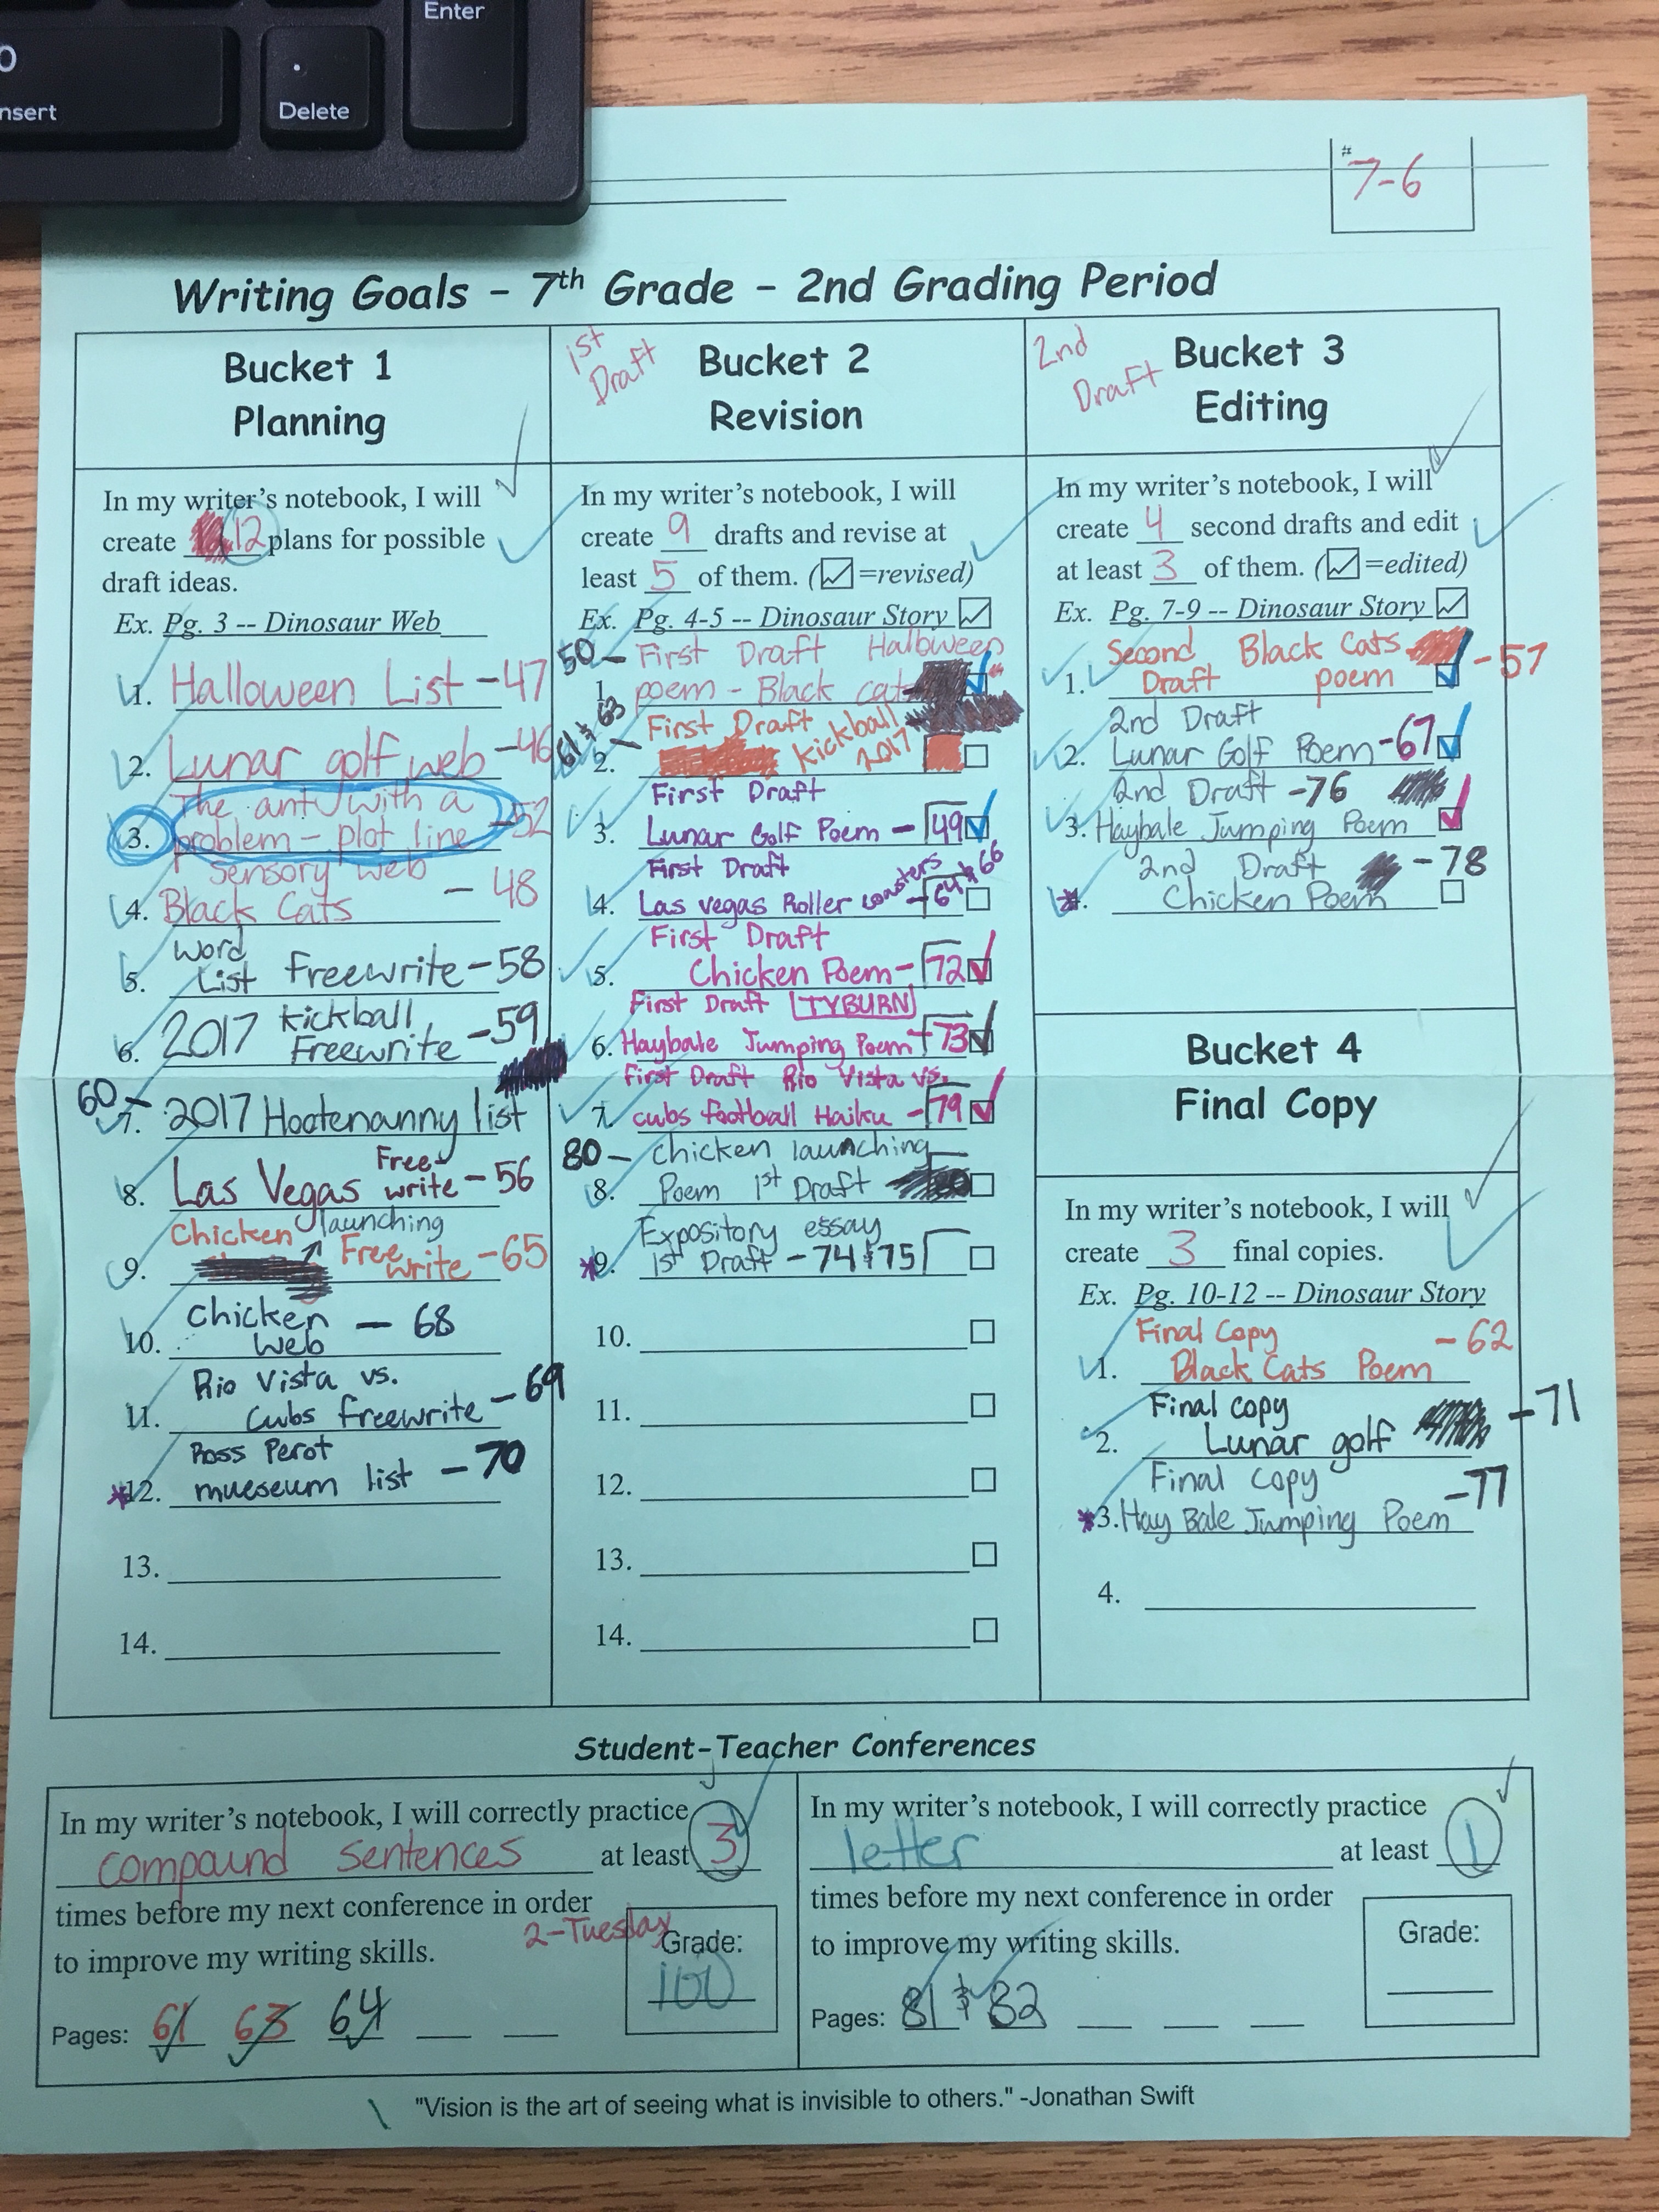 Enter
0
.
nsert
Delete
#
7-6
Writing Goals - 7th Grade - 2nd Grading Period
Bucket 1
Planning
In my writer's notebook, I will
create 12 plans for possible
draft ideas.
Ex. Pg. 3 -- Dinosaur Web
1. Halloween List - 47
2. Lunar golf web - 46
3. The ant with a
problem - plot line - 52
4. Sensory web
Black Cats - 48
5. Word
List Freewrite - 58
6. 2017 Kickball
Freewrite - 59
60 - 7. 2017 Hootenanny list
8. Las Vegas Free-
write - 56
9. Chicken launching
Free write - 65
10. Chicken
Web - 68
11. Rio Vista vs.
Cubs freewrite - 69
*12. Ross Perot
mueseum list - 70
13.
14.
1st
Draft
Bucket 2
Revision
In my writer's notebook, I will
create 9 drafts and revise at
least 5 of them. (☑=revised)
Ex. Pg. 4-5 -- Dinosaur Story ☑
50 - First Draft Halloween
1. poem - Black cats
61 & 63 - First Draft
2. Kickball 2017
First Draft
3. Lunar Golf Poem - 49
First Draft
4. Las vegas Roller coasters - 64 & 66
First Draft
5. Chicken Poem - 72
First Draft TYBURN
6. Haybale Jumping Poem - 73
First Draft Rio Vista vs.
7. cubs football Haiku - 79
80 - chicken launching
8. Poem 1st Draft
Expository essay
*9. 1st Draft - 74 & 75
10.
11.
12.
13.
14.
2nd
Draft
Bucket 3
Editing
In my writer's notebook, I will
create 4 second drafts and edit
at least 3 of them. (☑=edited)
Ex. Pg. 7-9 -- Dinosaur Story ☑
Second Black Cats
1. Draft poem - 57
2nd Draft
2. Lunar Golf Poem - 67
2nd Draft - 76
3. Haybale Jumping Poem
2nd Draft - 78
Chicken Poem
Bucket 4
Final Copy
In my writer's notebook, I will
create 3 final copies.
Ex. Pg. 10-12 -- Dinosaur Story
Final Copy
1. Black Cats Poem - 62
Final copy
2. Lunar golf - 71
Final copy
*3. Hay Bale Jumping Poem - 77
4.
Student-Teacher Conferences
In my writer's notebook, I will correctly practice
compound sentences at least 3
times before my next conference in order
to improve my writing skills.
2-Tuesday
Grade:
100
Pages: 61 63 64
In my writer's notebook, I will correctly practice
letter at least 1
times before my next conference in order
to improve my writing skills.
Grade:
Pages: 81 & 82
"Vision is the art of seeing what is invisible to others." -Jonathan Swift